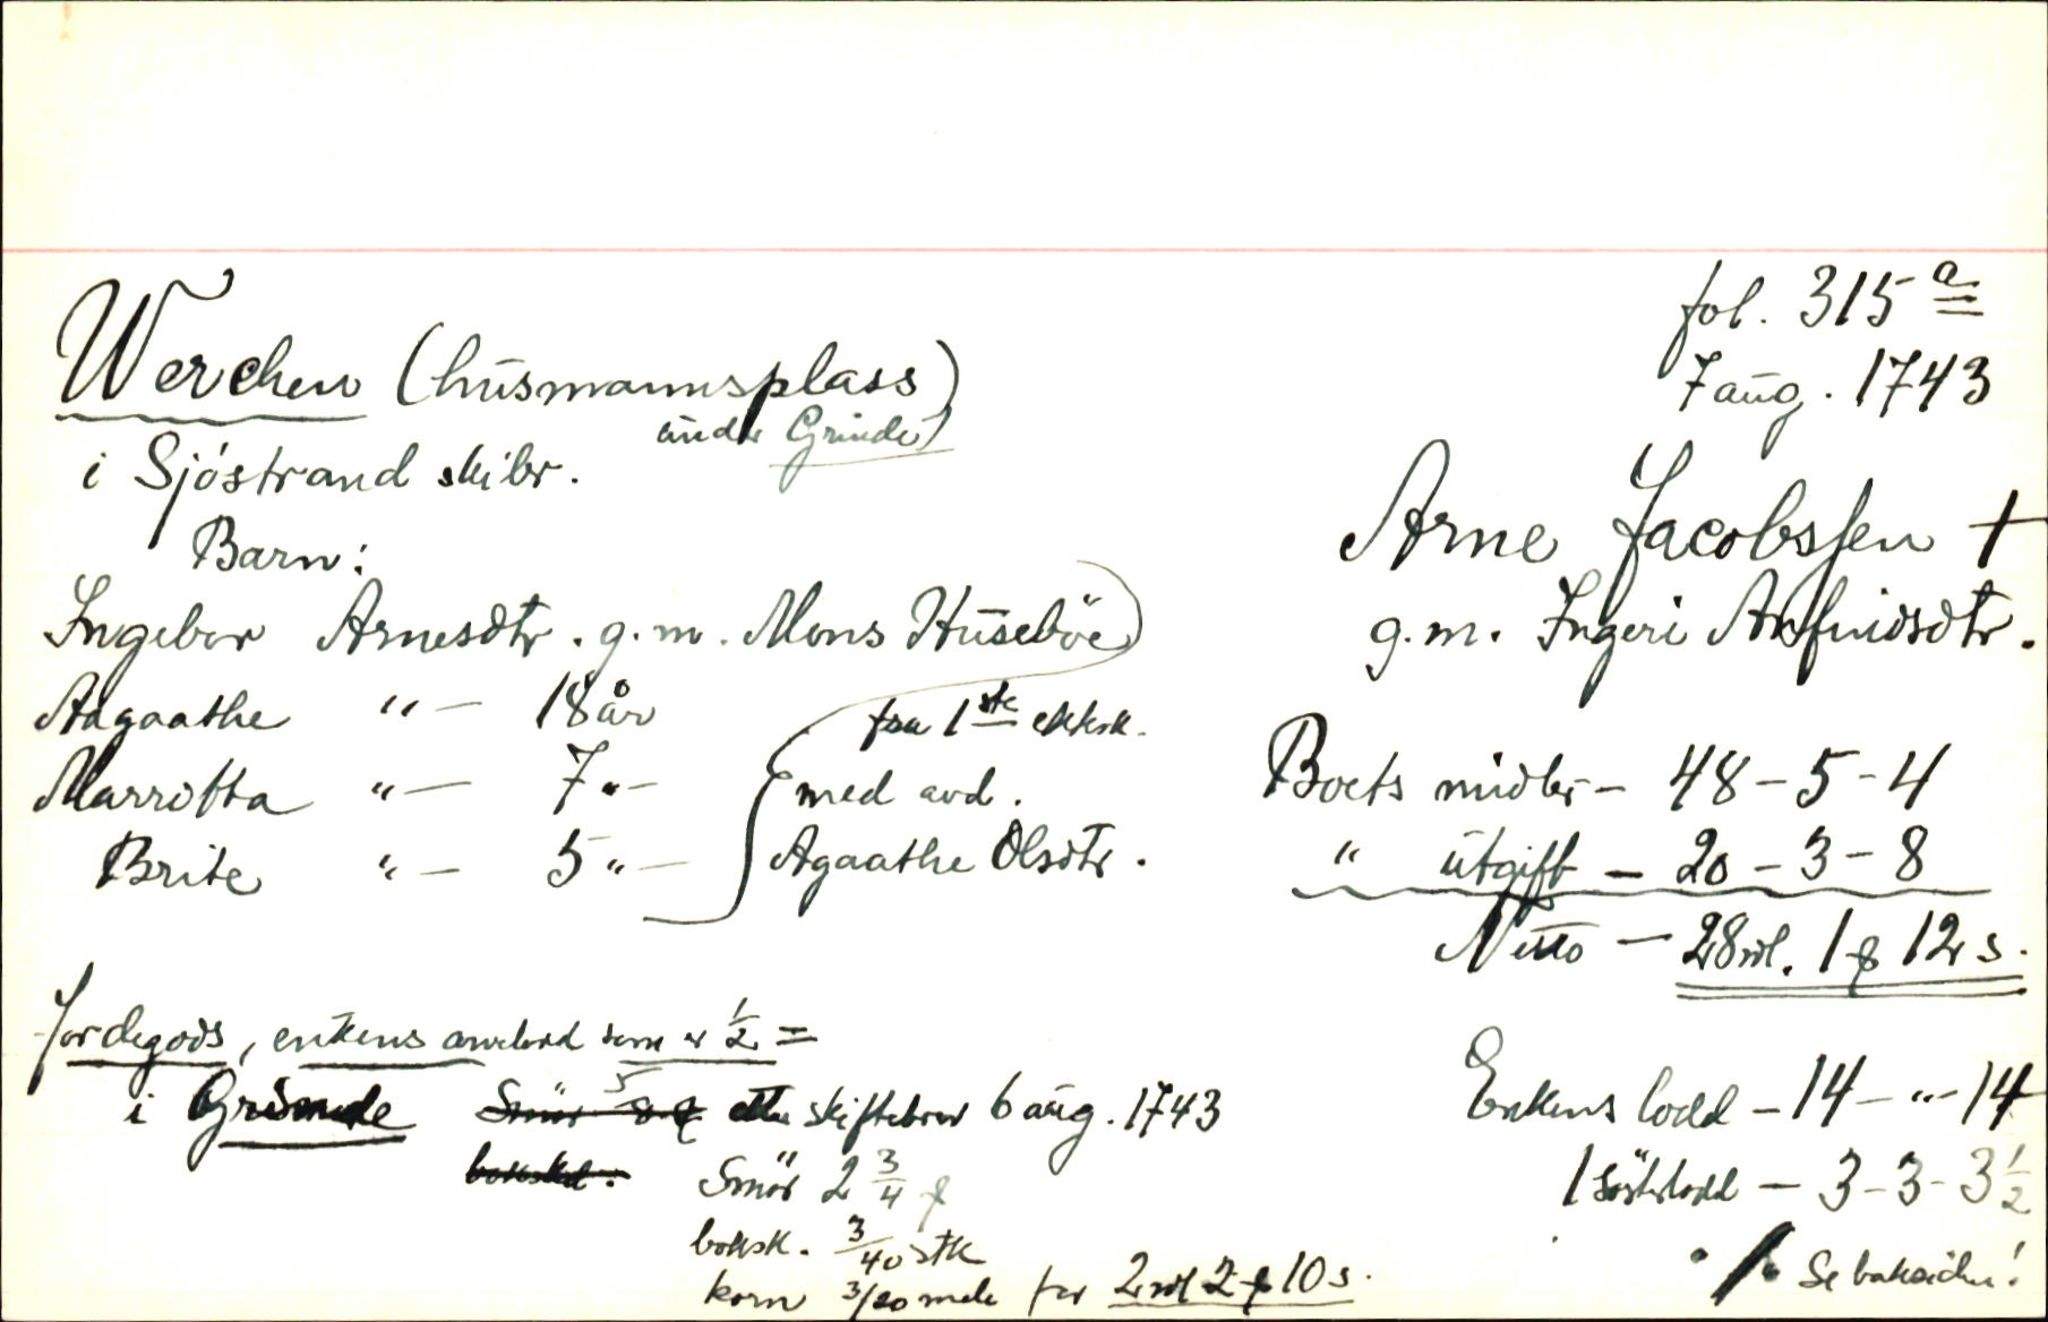 fol. 315 a
7 aug. 1743
Werchen (husmannsplass)
under Grinde)
i Sjöstrand skibr.
Arne Jacobssen †
g.m. Ingeri Anfindsdtr.
Barn:
Ingebor Arnesdtr. g.m. Mons Huseböe
Aagaathe "— 18 år
Marritta "— 7 "—
Brite "— 5 "—
fra 1ste ektsk.
med avd.
Agaathe Olsdtr.
Boets midler — 48 — 5 — 4
" utgift — 20 — 3 — 8
Netto — 28 rdl. 1 ₰ 12 s.
Enkens lodd — 14 — " — 14
1 Sösterlodd — 3 — 3 — 3 1/2
./. Se baksiden!
Jordegods, enkens som er 1/2 =
i Grinde Smör etter skiftebrev 6 aug. 1743
Smör 2 3/4 ₰
boksk. 3/40 stk
korn 3/20 mele for 2 rdl 2 ₰ 10 s.